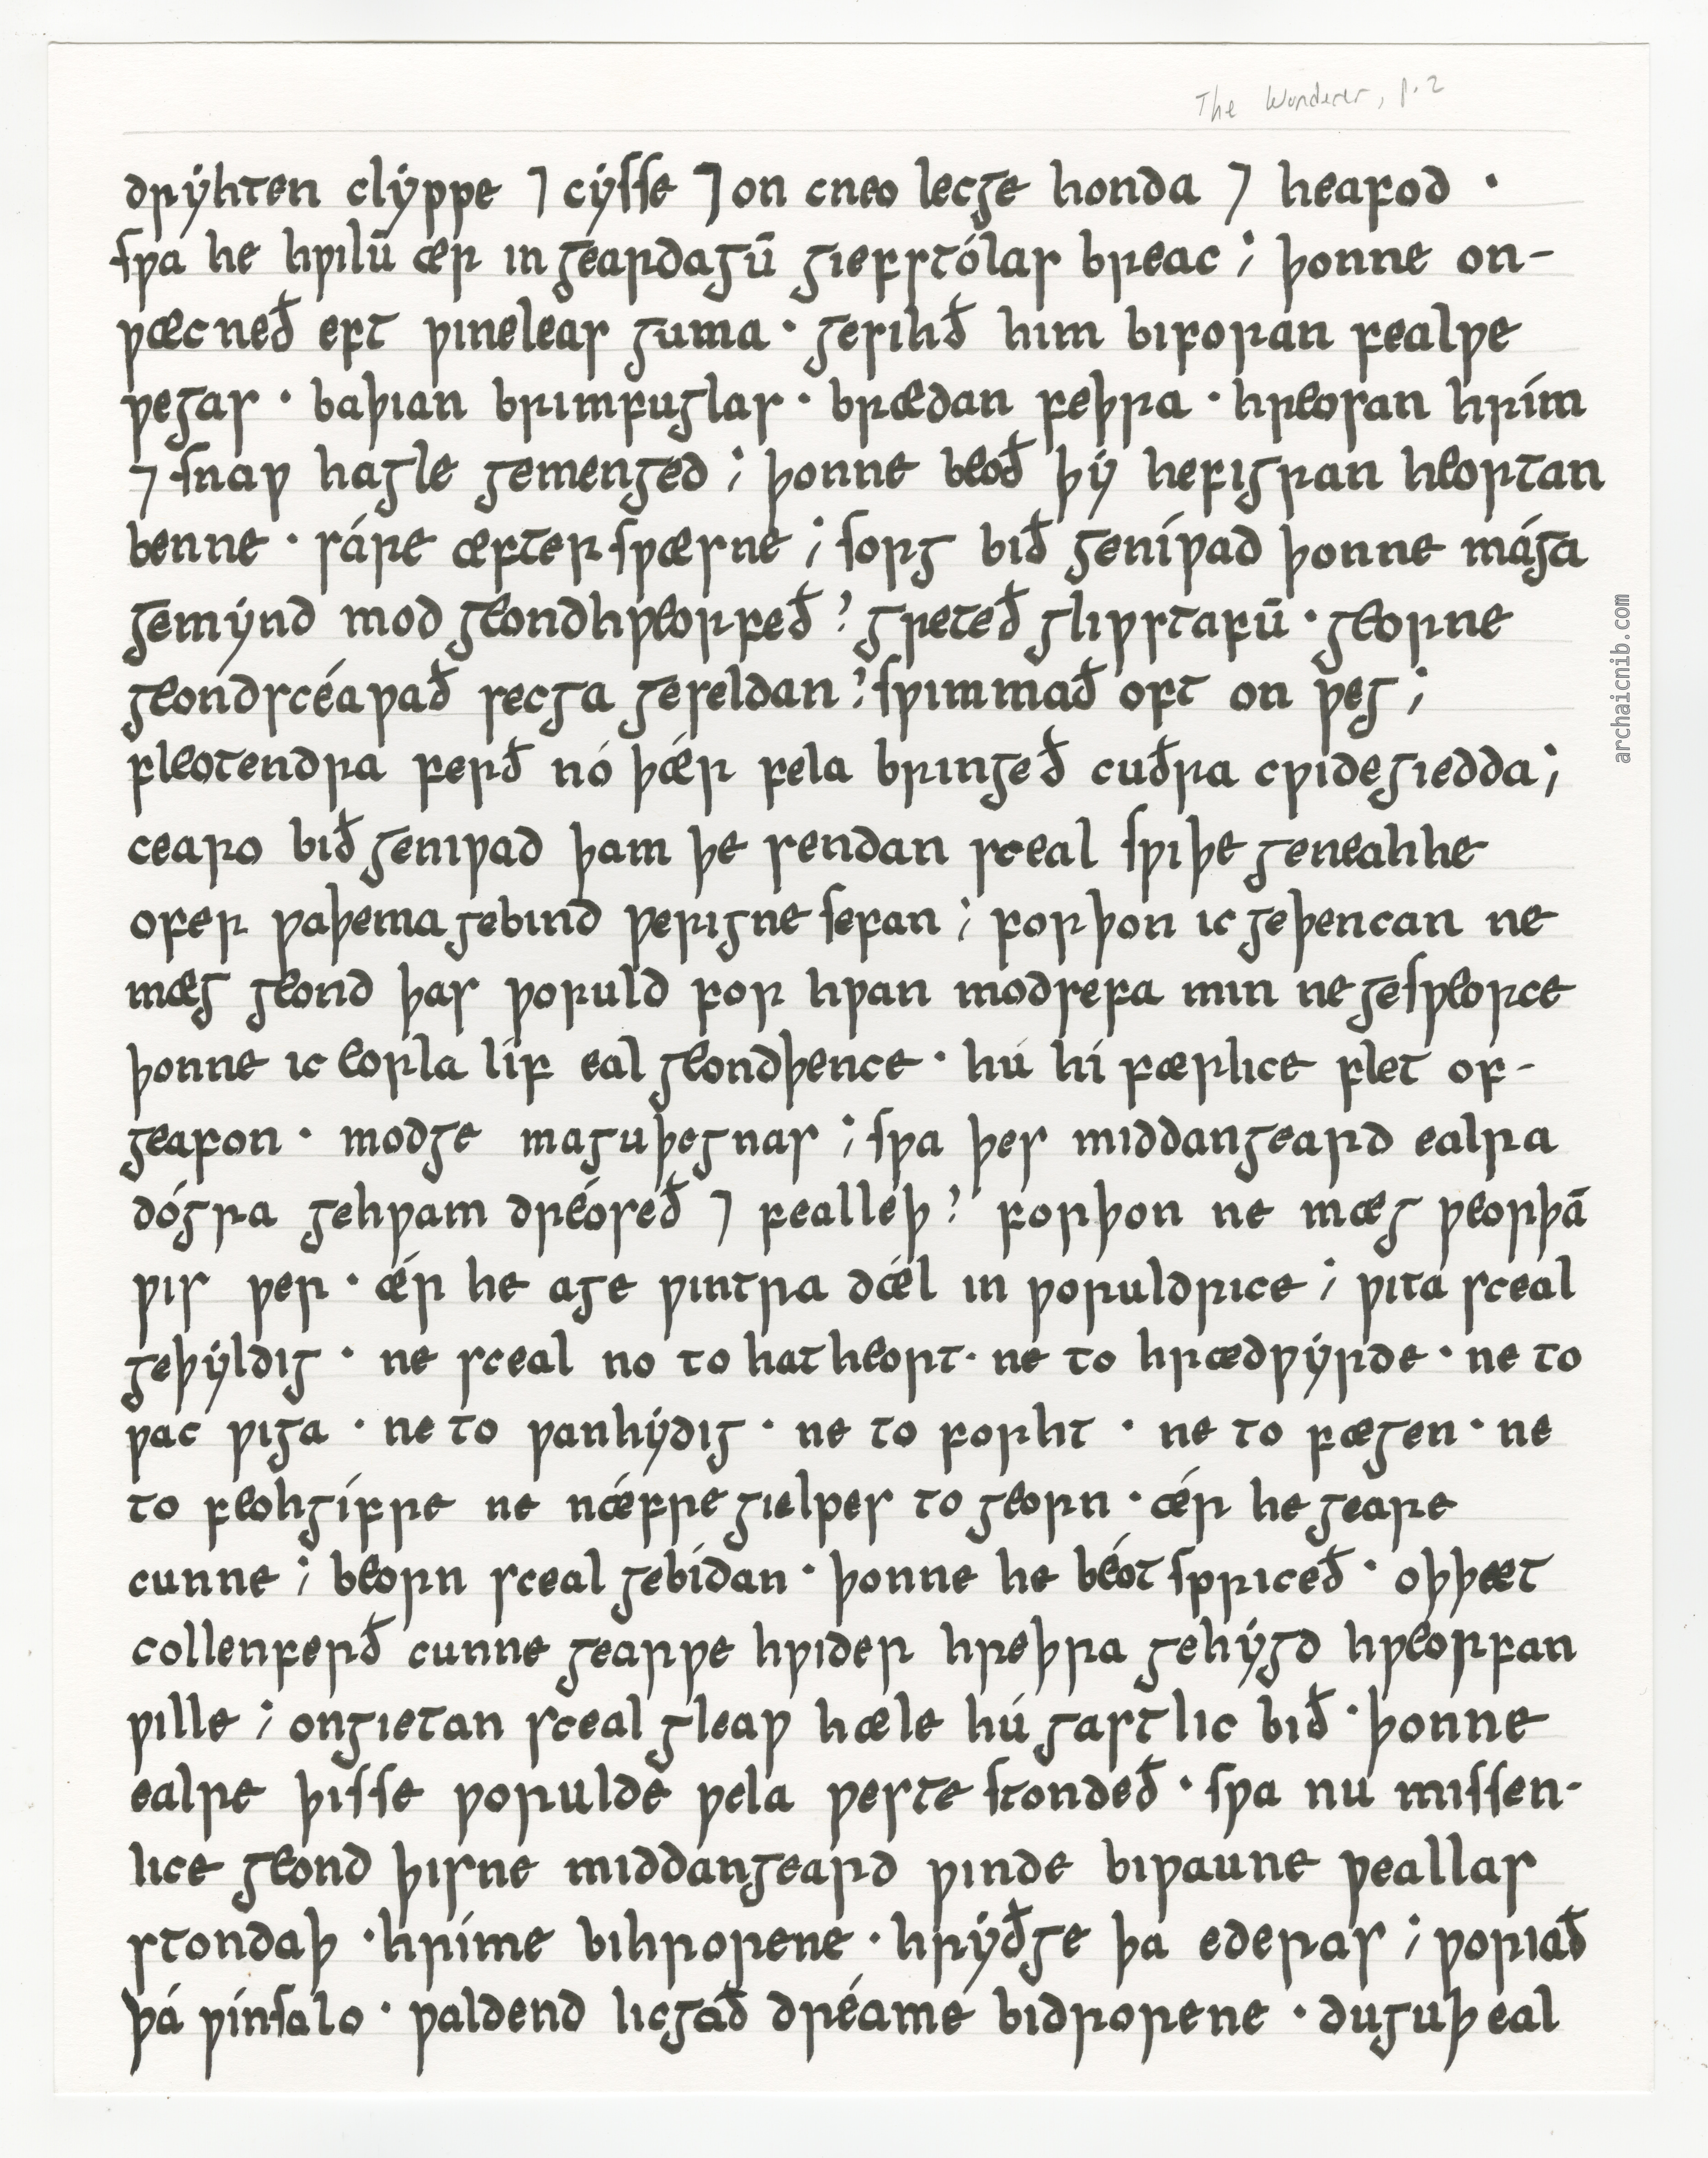 The Wanderer, p. 2
drẏhten clẏppe ⁊ cẏſſe ⁊ on cneo lecge honda ⁊ heafod ·
ſƿa he hƿilū ær in geardagū giefstólas breac ; þonne on-
ƿæcneð eft ƿineleas guma · gesihð him biforan fealƿe
ƿegas · baþian brimfuglas · brædan feþra · hreosan hrím
⁊ ſnaƿ hagle gemenged ; þonne beoð þẏ hefigran heortan
benne · sáre æfter ſƿæsne ; ſorg bið geníƿad þonne mága
gemẏnd mod geondhƿeorfeð ? greteð gliƿstafū · georne
geondscéaƿað secga geseldan ? ſƿimmað oft on ƿeg ;
fleotendra ferð nó þǽr fela bringeð cuðra cƿidegiedda ;
cearo bið geniƿad þam þe sendan sceal ſƿiþe geneahhe
ofer ƿaþema gebind ƿerigne ſefan ; forþon ic geþencan ne
mæg geond þas ƿoruld for hƿan modsefa min ne geſƿeorce
þonne ic eorla líf eal geondþence · hú hí færlice flet of-
geafon · modge maguþegnas ; ſƿa þes middangeard ealra
dógra gehƿam dréoseð ⁊ fealleþ ? forþon ne mæg ƿeorþā
ƿis ƿer · ǽr he age ƿintra dǽl in ƿoruldrice ; ƿita sceal
geþẏldig · ne sceal no to hatheort · ne to hrædƿẏrde · ne to
ƿac ƿiga · ne to ƿanhẏdig · ne to forht · ne to fægen · ne
to feohgífre ne nǽfre gielpes to georn · ǽr he geare
cunne ; beorn sceal gebídan · þonne he béot ſpriceð · oþþæt
collenferð cunne gearƿe hƿider hreþra gehẏgd hƿeorfan
ƿille ; ongietan sceal gleaƿ hæle hú gastlic bið · þonne
ealre þiſſe ƿorulde ƿela ƿeste ſtondeð · ſƿa nu miſſen-
lice geond þisne middangeard ƿinde biƿaune ƿeallas
stondaþ · hríme bihrorene · hrẏðge þa ederas ; ƿoriað
þá ƿínſalo · ƿaldend licgað dréamé bidrorene · duguþ eal
archaicnib.com